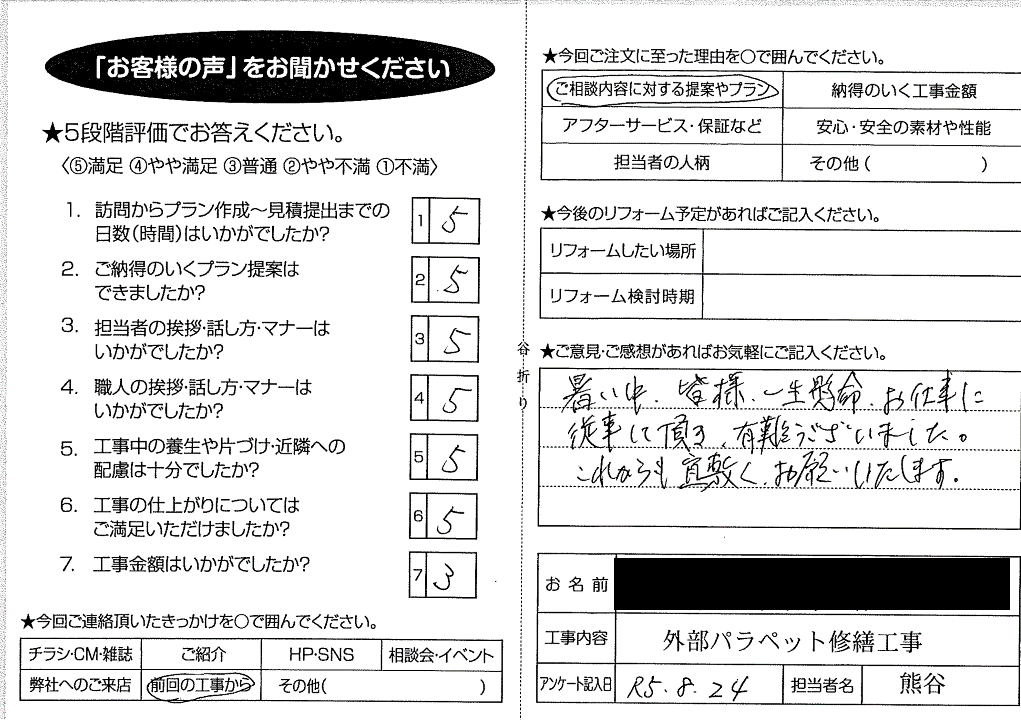 「お客様の声」をお聞かせください
★5段階評価でお答えください。
〈⑤満足 ④やや満足 ③普通 ②やや不満 ①不満〉
1. 訪問からプラン作成〜見積提出までの
日数(時間)はいかがでしたか?
1 5
2. ご納得のいくプラン提案は
できましたか?
2 5
3. 担当者の挨拶・話し方・マナーは
いかがでしたか?
3 5
4. 職人の挨拶・話し方・マナーは
いかがでしたか?
4 5
5. 工事中の養生や片づけ・近隣への
配慮は十分でしたか?
5 5
6. 工事の仕上がりについては
ご満足いただけましたか?
6 5
7. 工事金額はいかがでしたか?
7 3
★今回ご連絡頂いたきっかけを○で囲んでください。
チラシ・CM・雑誌 ご紹介 HP・SNS 相談会・イベント
弊社へのご来店 前回の工事から その他( )
谷折り
★今回ご注文に至った理由を○で囲んでください。
ご相談内容に対する提案やプラン 納得のいく工事金額
アフターサービス・保証など 安心・安全の素材や性能
担当者の人柄 その他( )
★今後のリフォーム予定があればご記入ください。
リフォームしたい場所
リフォーム検討時期
★ご意見・ご感想があればお気軽にご記入ください。
暑い中、皆様、一生懸命、お仕事に
従事して頂き、有難うございました。
これからも宜敷く、お願いいたします。
お名前
工事内容 外部パラペット修繕工事
アンケート記入日 R5.8.24 担当者名 熊谷